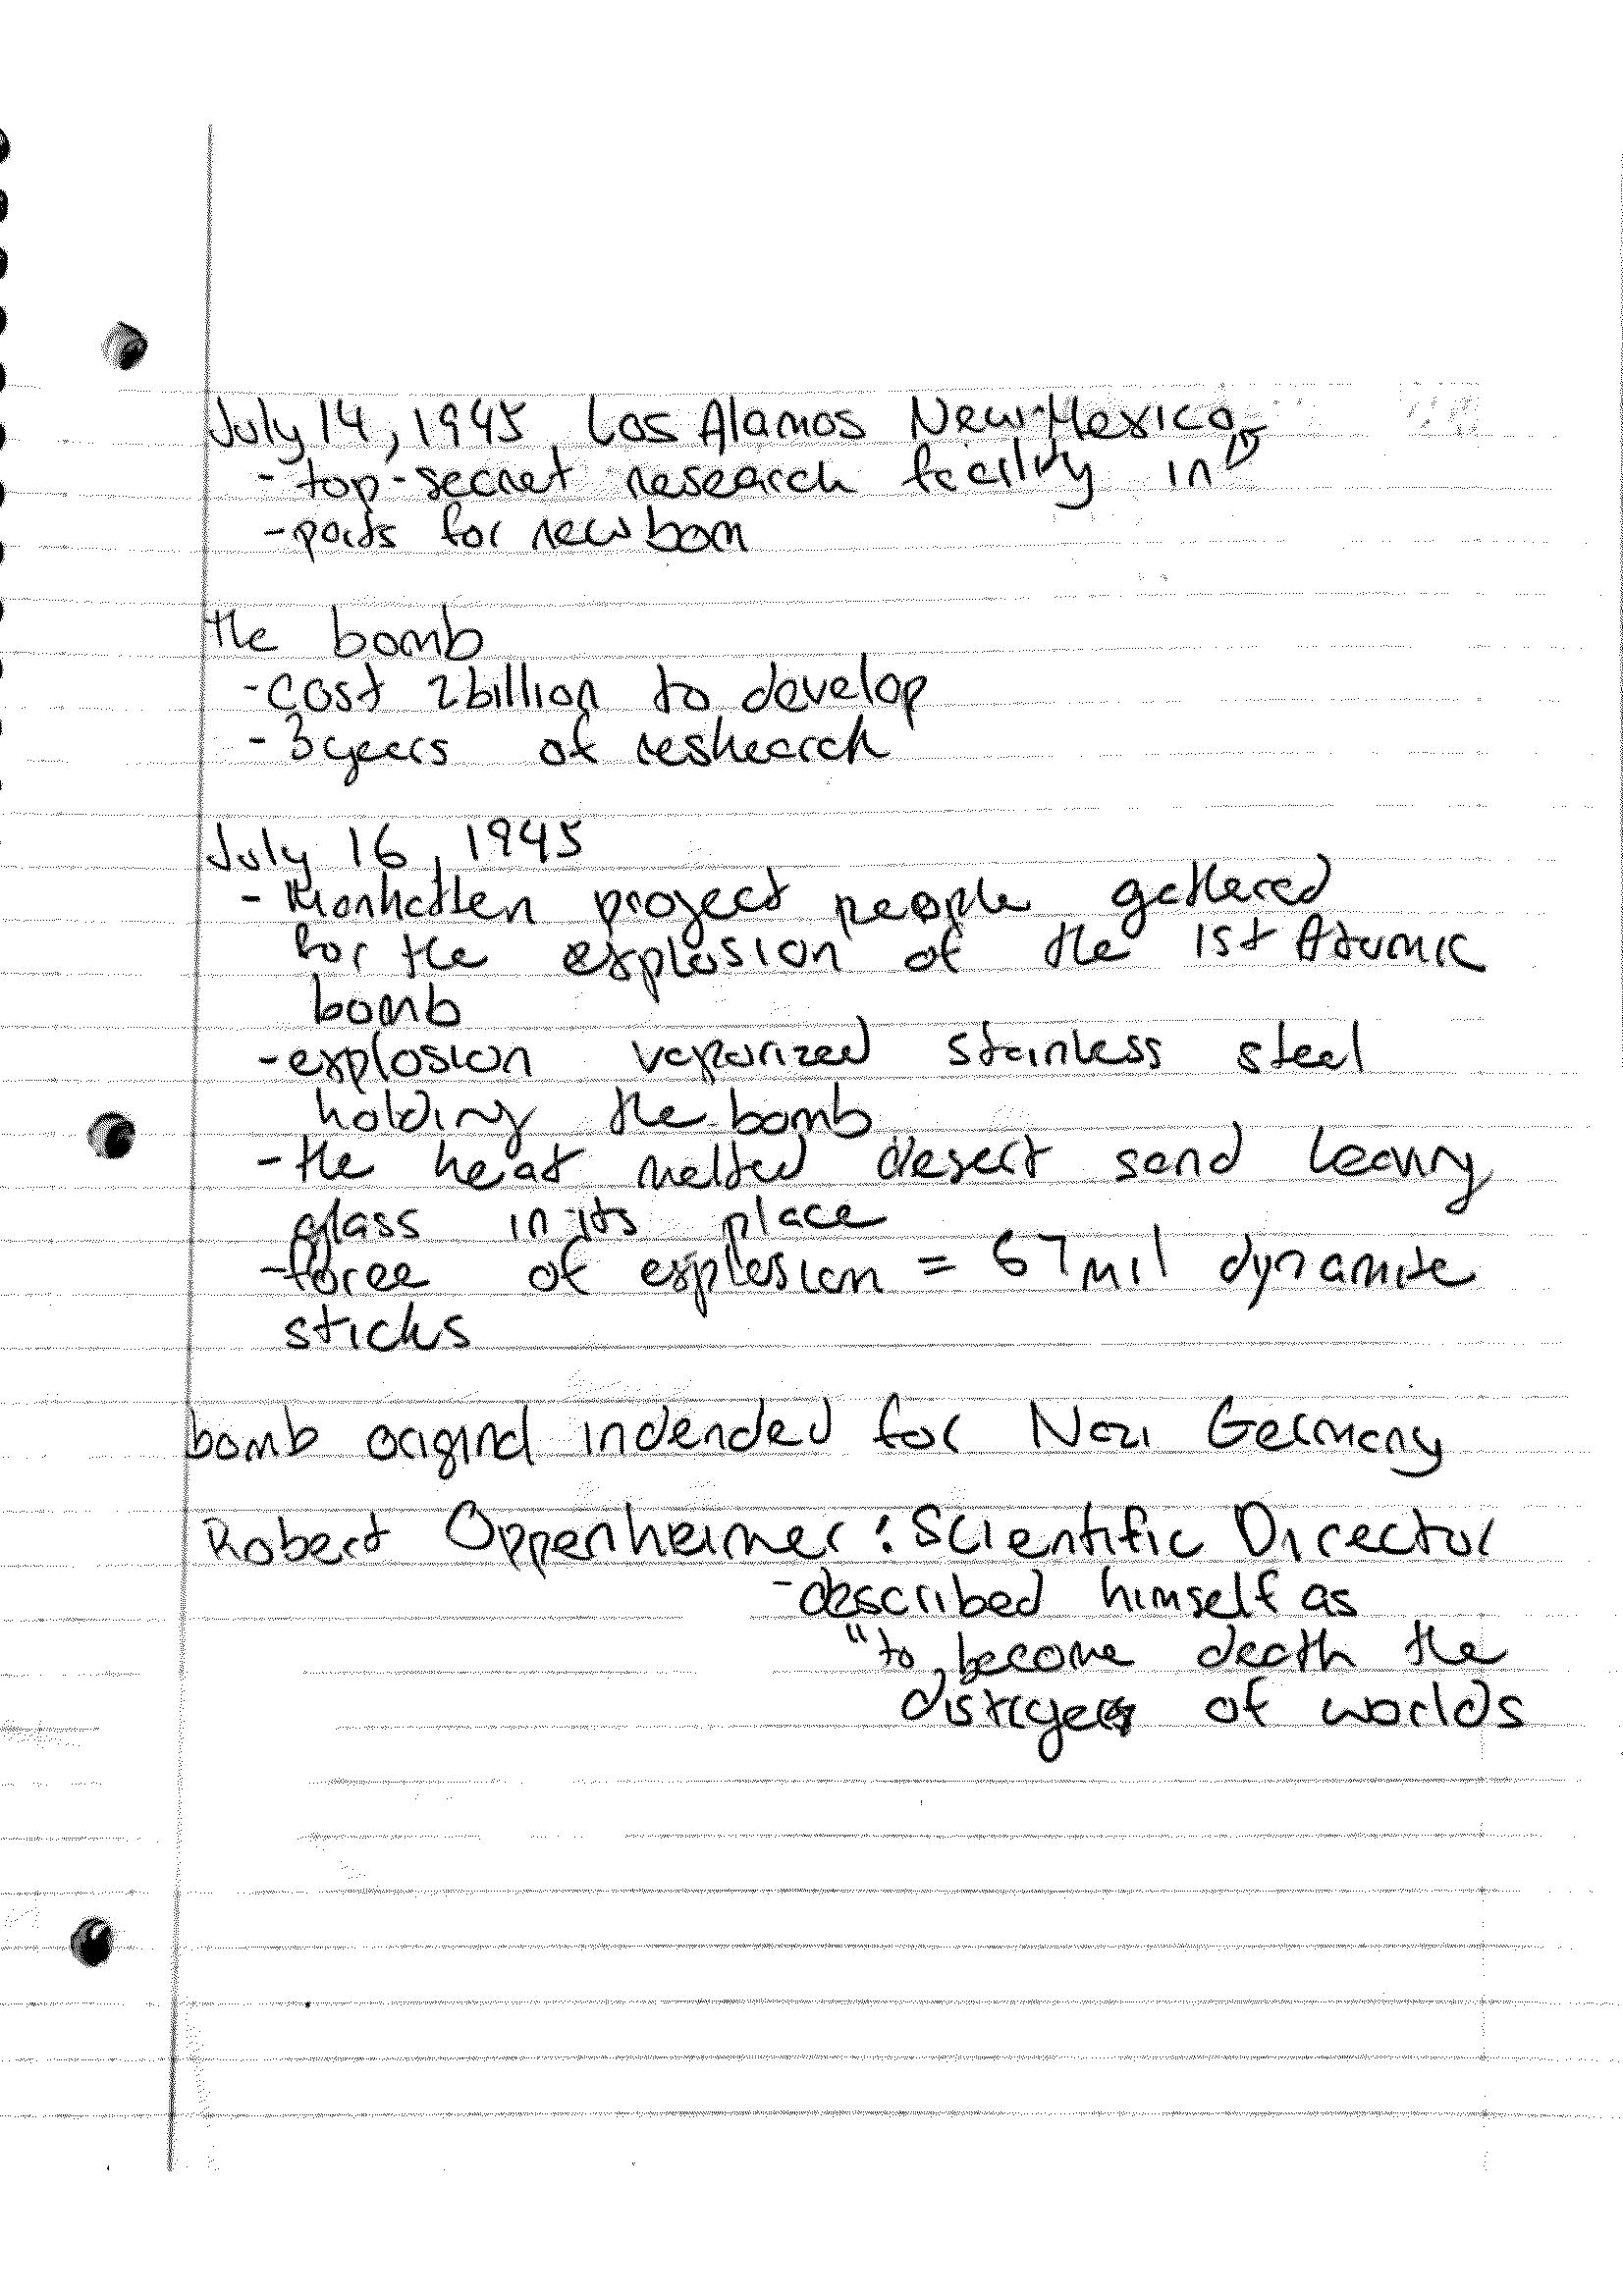 July 14, 1945, Los Alamos New Mexico
- top-secret research facility in
- parts for new bom
the bomb
- cost 2 billion to develop
- 3 years of reshearch
July 16, 1945
- Manhatten project people gathered
for the explosion of the 1st Atomic
bomb
- explosion vaporized stainless steel
holding the bomb
- the heat melted desert sand leaving
glass in its place
- force of explosion = 67 mil dynamite
sticks
bomb original indended for Nazi Germany
Robert Oppenheimer : Scientific Director
- described himself as
"to become death the
distryers of worlds